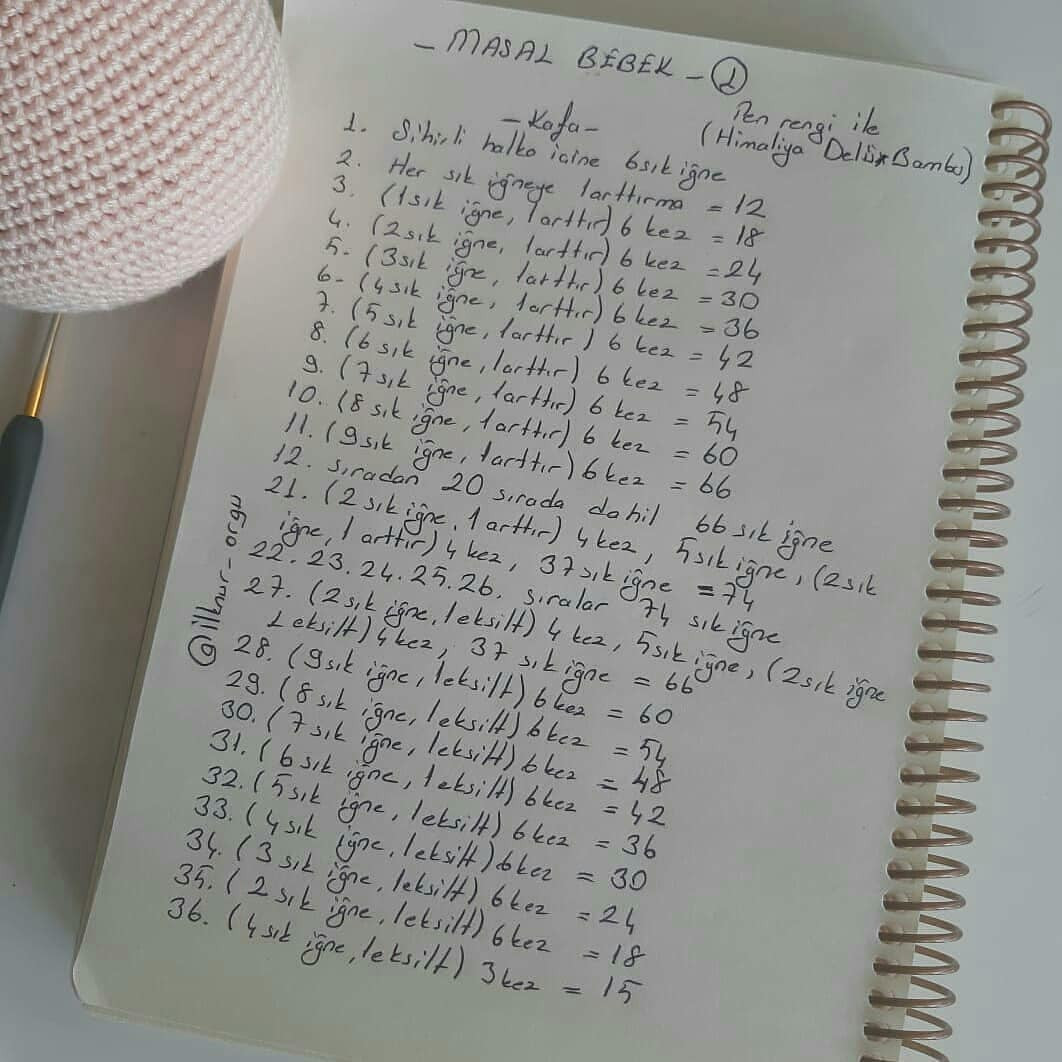 - MASAL BEBEK - 1
- Kafa -
Ten rengi ile
(Himaliya Delüx Bambu)
1. Sihirli halka icine 6 sık iğne
2. Her sık iğneye 1 arttırma = 12
3. (1 sık iğne, 1 arttır) 6 kez = 18
4. (2 sık iğne, 1 arttır) 6 kez = 24
5. (3 sık iğne, 1 arttır) 6 kez = 30
6- (4 sık iğne, 1 arttır) 6 kez = 36
7. (5 sık iğne, 1 arttır) 6 kez = 42
8. (6 sık iğne, 1 arttır) 6 kez = 48
9. (7 sık iğne, 1 arttır) 6 kez = 54
10. (8 sık iğne, 1 arttır) 6 kez = 60
11. (9 sık iğne, 1 arttır) 6 kez = 66
12. sıradan 20 sırada dahil 66 sık iğne
21. (2 sık iğne, 1 arttır) 4 kez, 5 sık iğne, (2 sık
iğne, 1 arttır) 4 kez, 37 sık iğne = 74
22. 23. 24. 25. 26. sıralar 74 sık iğne
27. (2 sık iğne, 1 eksilt) 4 kez, 5 sık iğne, (2 sık iğne
1 eksilt) 4 kez, 37 sık iğne = 66
28. (9 sık iğne, 1 eksilt) 6 kez = 60
29. (8 sık iğne, 1 eksilt) 6 kez = 54
30. (7 sık iğne, 1 eksilt) 6 kez = 48
31. (6 sık iğne, 1 eksilt) 6 kez = 42
32. (5 sık iğne, 1 eksilt) 6 kez = 36
33. (4 sık iğne, 1 eksilt) 6 kez = 30
34. (3 sık iğne, 1 eksilt) 6 kez = 24
35. (2 sık iğne, 1 eksilt) 6 kez = 18
36. (4 sık iğne, 1 eksilt) 3 kez = 15
@ilknur-orgu